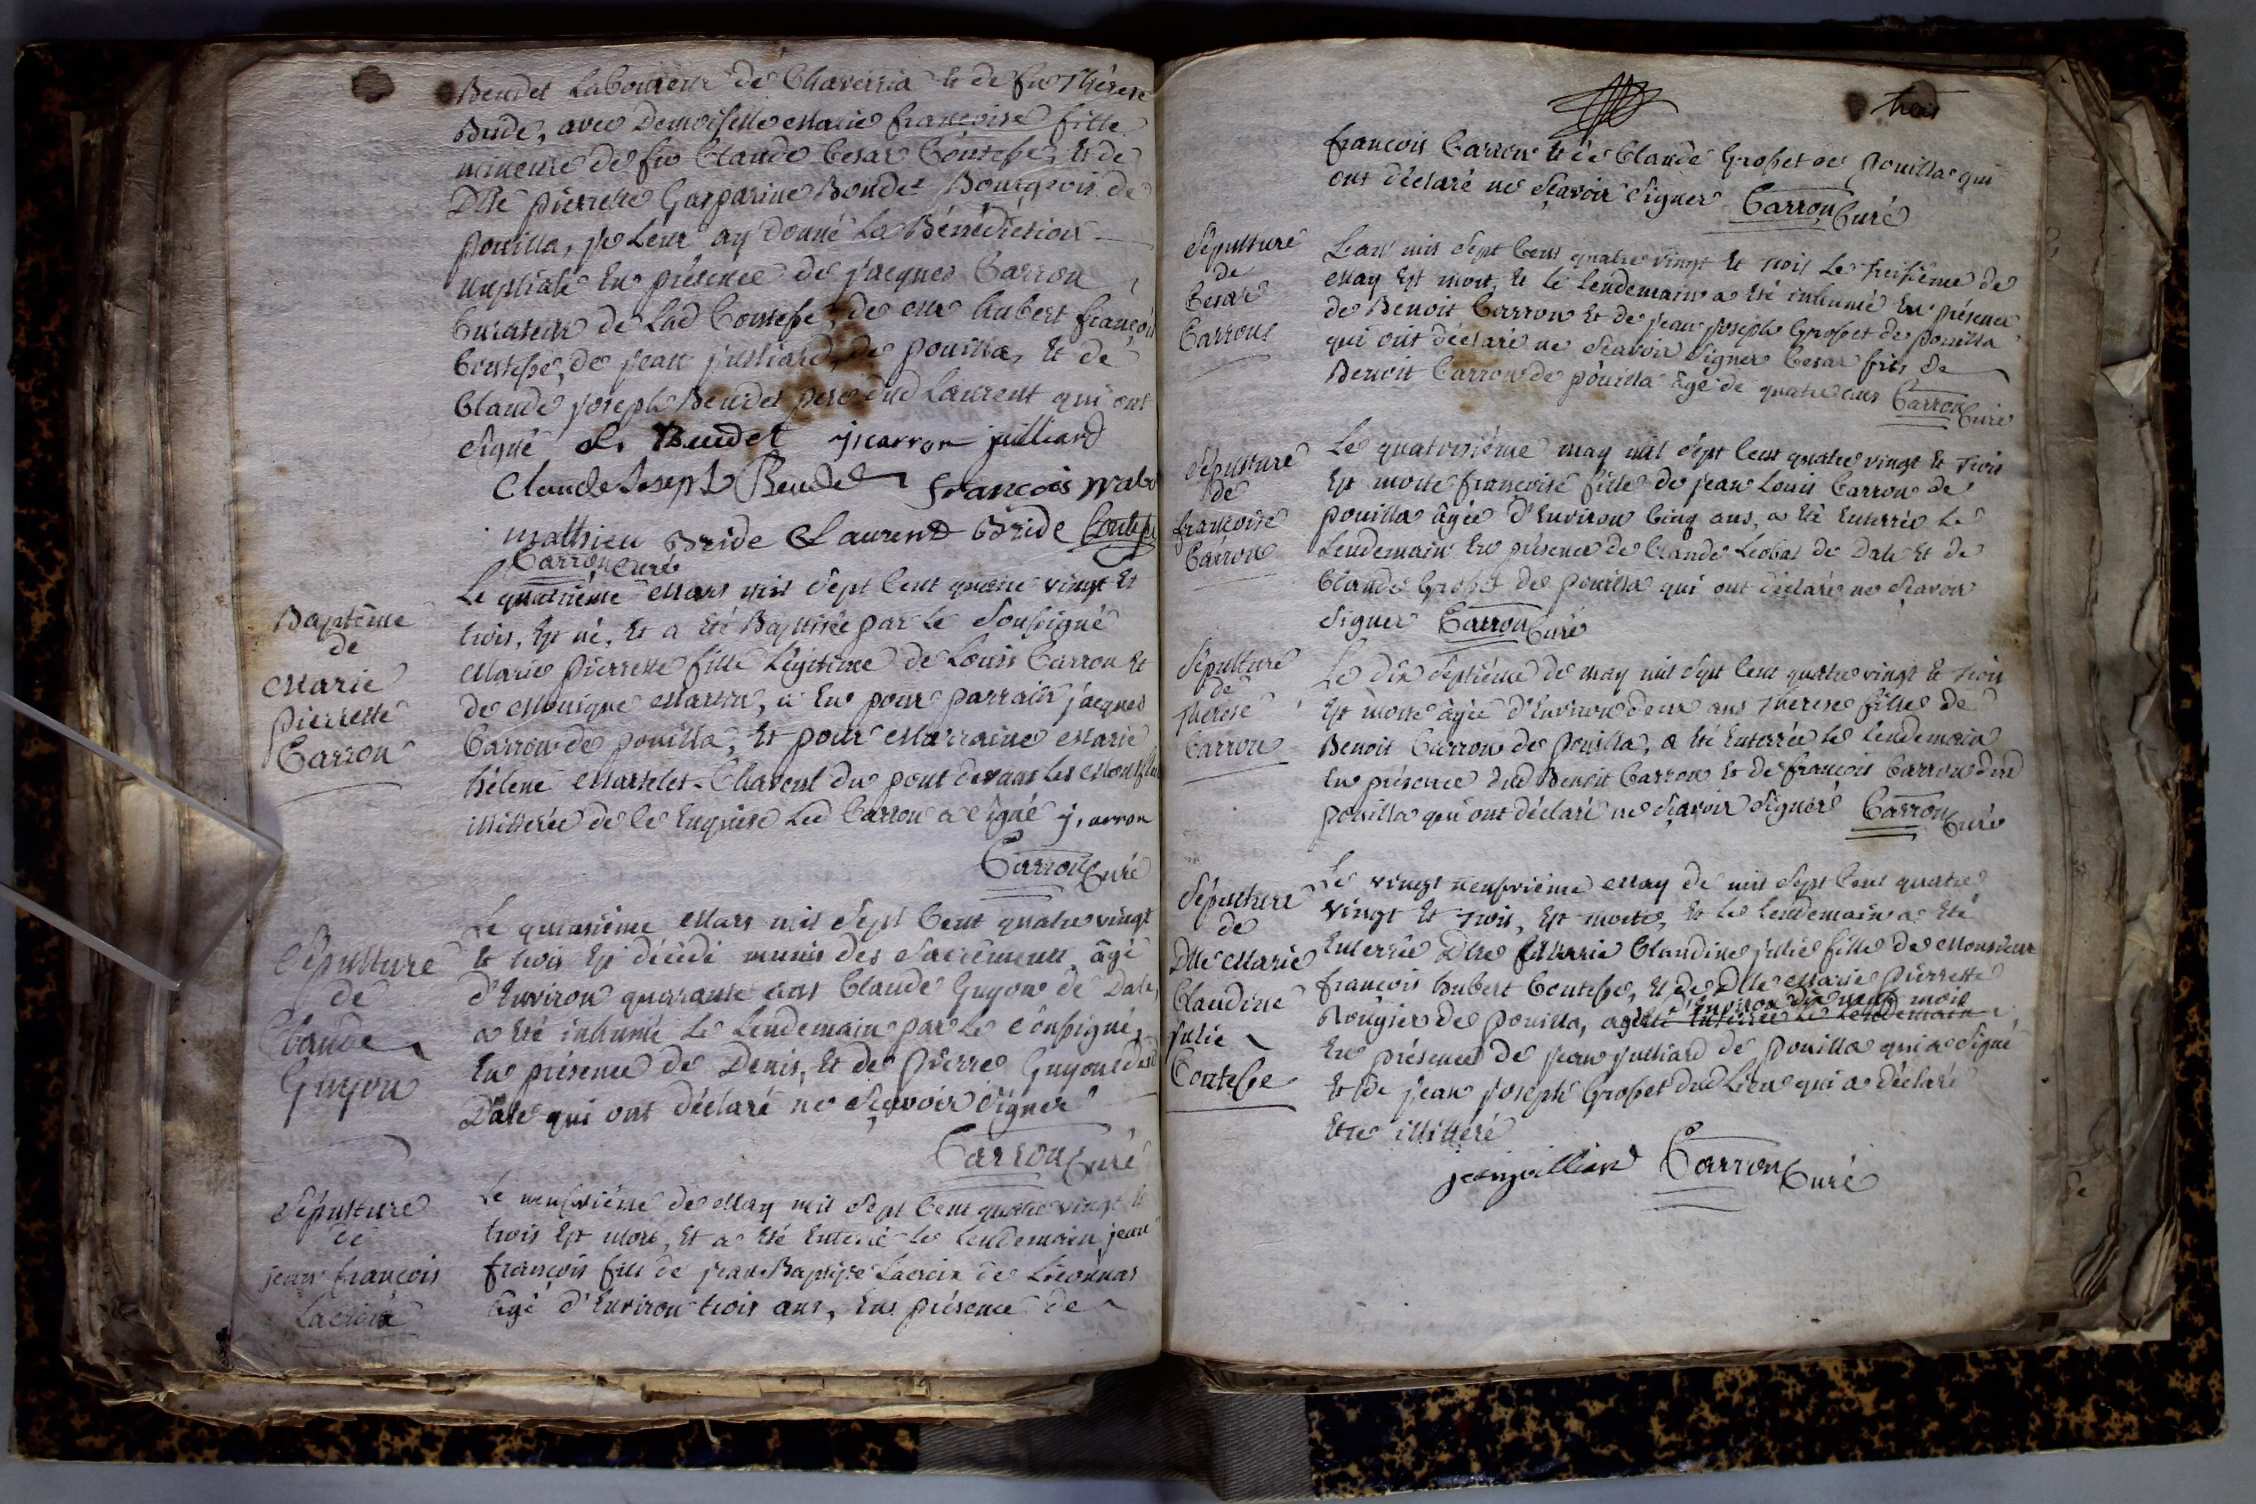 Beudet Laboureur de Chaverria et de feu Thérese
Bride, avec Demoiselle Marie françoise fille
mineure de feu Claude Cesar Contesse, et de
Dlle pierrette Gasparine Boudet Bourgeois de
pouilla, je Leur ay donné La Bénédiction
nuptiale En présence de jacques Carron
Curateur de Lad Contesse, de Mr hubert françois
Contesse, de jean juilliard, de pouilla, Et de
Claude joseph Beudet pere dud Laurent qui ont
signé L. Beudet j carron juilliard
Claude Joseph Beudet françois
mathieu Bride Laurent Bride Contesse
Carron Curé
Baptême
de
Marie
pierrette
Carron
Le quatrième Mars mil Sept Cent quatre vingt Et
trois, Est né, Et a Eté Baptisée par Le Soussigné
Marie pierrette fille Légitime de Louis Carron Et
de Monique Martin, a Eu pour parrain jacques
Carron de pouilla, Et pour Marraine Marie
hélene Martelet-Chavent du pont devant les
illitterée de ce Enquise Led Carron a Signé j. carron
Carron Curé
Sépulture
de
Claude
Guyon
Le quinsième Mars mil Sept Cent quatre vingt
Et trois Est décédé munis des Sacrements âgé
d'Environ quarante ans Claude Guyon de Date,
a Eté inhumé Le Lendemain par Le Soussigné,
En présence de Denis, Et de pierre Guyon dud
Date qui ont déclaré ne Sçavoir Signer
Carron Curé
Sépulture
de
jean françois
Lacroix
Le neufvième de May mil Sept Cent quatre vingt Et
trois Est mort, Et a Eté Enterré Le Lendemain jean
françois fils de jean Baptiste Lacroix de Liconnas
âgé d'Environ trois ans, En présence de
trois
françois Carron Et de Claude Grosset de pouilla qui
ont déclaré ne Sçavoir Signer Carron Curé
Sépulture
de
Cesar
Carron
L'an mil Sept Cent quatre vingt Et trois Le treisième de
May Est mort, Et Le Lendemain a Eté inhumé En présence
de Benoit Carron Et de jean joseph Grosset de pouilla
qui ont déclaré ne Sçavoir Signer Cesar fils de
Benoit Carron de pouilla âgé de quatre ans Carron Curé
Sépulture
de
françoise
Carron
Le quatorsième may mil Sept Cent quatre vingt Et trois
Est morte françoise fille de jean Louis Carron de
pouilla âgée d'Environ Cinq ans, a Eté Enterrée Le
Lendemain En présence de Claude Léobal de Date Et de
Claude Grosset de pouilla qui ont déclaré ne Sçavoir
Signer Carron Curé
Sépulture
de
Thérese
Carron
Le dix Septième de may mil Sept Cent quatre vingt Et trois
Est morte âgée d'Environ deux ans Thérese fille de
Benoit Carron de pouilla, a Eté Enterrée Le Lendemain
En présence dud Benoit Carron Et de françois Carron dud
pouilla qui ont déclaré ne Sçavoir Signer Carron Curé
Sépulture
de
Dlle Marie
Claudine
julie
Contesse
Le vingt neufvième May de mil Sept Cent quatre
vingt Et trois, Est morte, Et Le Lendemain a Eté
Enterrée Dlle Marie Claudine julie fille de Monsieur
françois hubert Contesse, Et de Dlle Marie pierrette
Rougier de pouilla, agée d'Environ dix neuf mois
En présence de jean juilliard de pouilla qui a Signé
Et de jean joseph Grosset dud Lieu qui a déclaré
Etre illitteré
jean juilliard Carron Curé